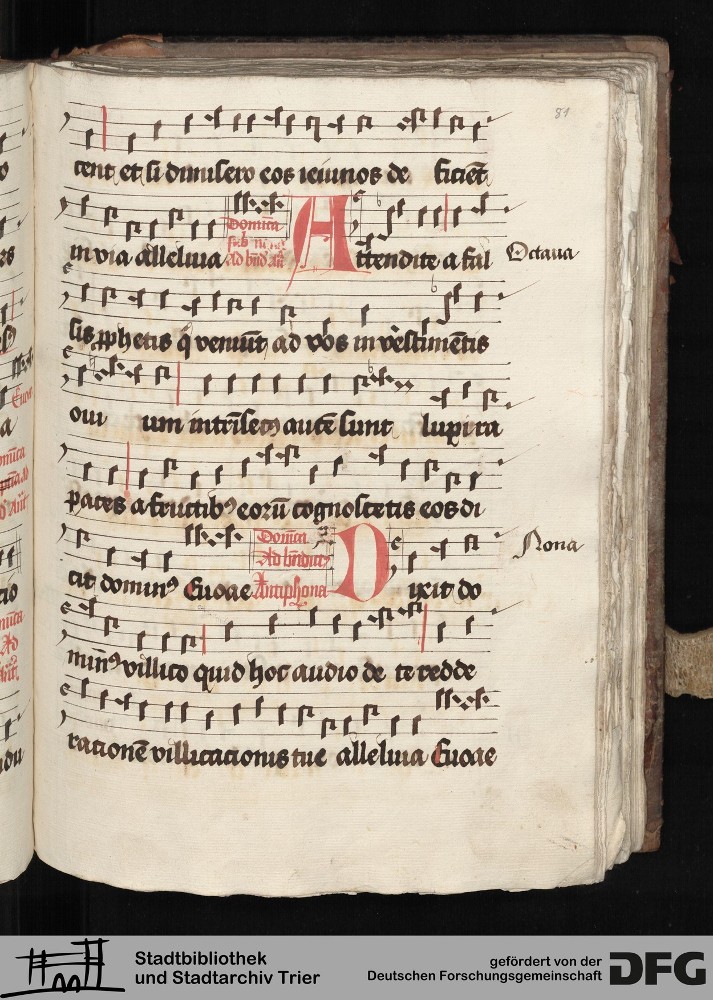 81
cent et si dimisero eos ieiunos de ficiēt
in via alleluia Domīca Attendite a fal Octaua
sis ꝓphetis q̄ veniūt ad vos in vestimētis
oui um intrīsecꝰ autē sunt lupi ra
paces a fructibꝰ eorū cognoscetis eos di
cit dominꝰ Euoae Domīca Ad bn̄dictꝰ Antiphona Dixit do Nona
minꝰ villico quid hoc audio de te redde
rationē villicacionis tue alleluia Euoae
Stadtbibliothek
und Stadtarchiv Trier
gefördert von der
Deutschen Forschungsgemeinschaft
DFG